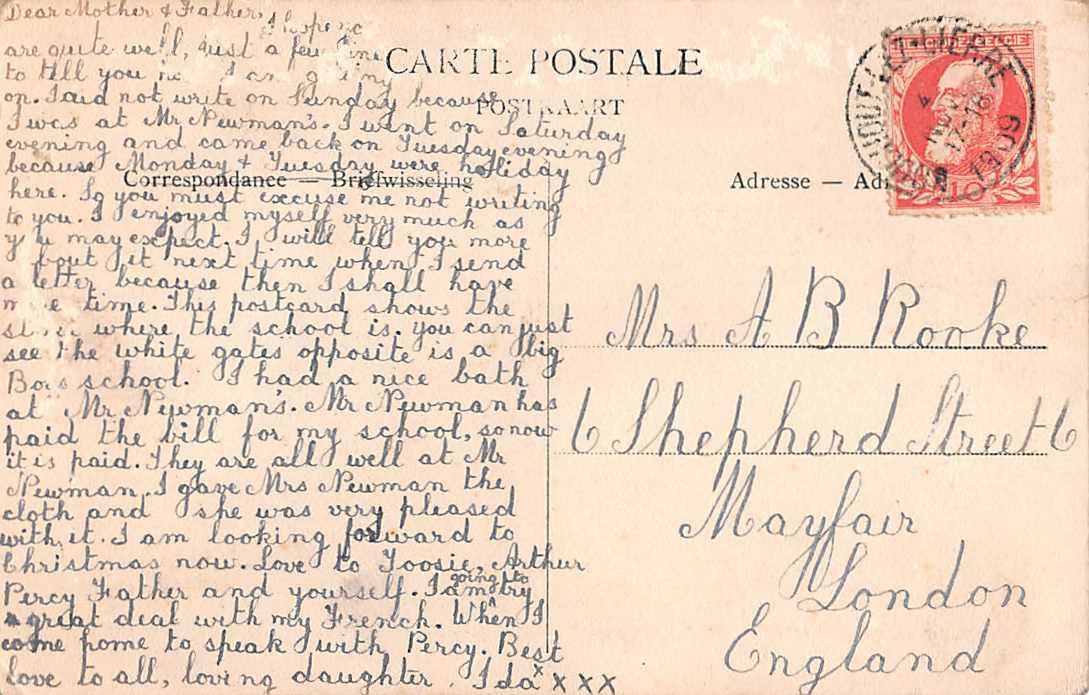 Dear Mother & Father,
I hope
are quite well, just a few line
to tell you
on. I did not write on Sunday because
I was at Mr Newman's. I went on Saturday
evening and came back on Tuesday evening
because Monday & Tuesday were holiday
here. So you must excuse me not writing
to you. I enjoyed myself very much as
you may expect. I will tell you more
bout it next time when I send
a letter because then I shall have
time. This postcard shows the
where the school is. you can just
see the white gates opposite is a big
Boys school. I had a nice bath
at Mr Newman's. Mr Newman has
paid the bill for my school, so now
it is paid. They are all well at Mr
Newman. I gave Mrs Newman the
cloth and she was very pleased
with it. I am looking forward to
Christmas now. Love to Toosie, Arthur
Percy Father and yourself. I am going to try
a great deal with my French. When I
come home to speak with Percy. Best
love to all, loving daughter. Ida x x x x
CARTE POSTALE
POSTKAART
Correspondance — Briefwisseling
Adresse — Ad
LIERRE
4
NOV
17-18
1909
BELGIE
10
Mrs A B Rooke
6 Shepherd Street 6
Mayfair
London
England